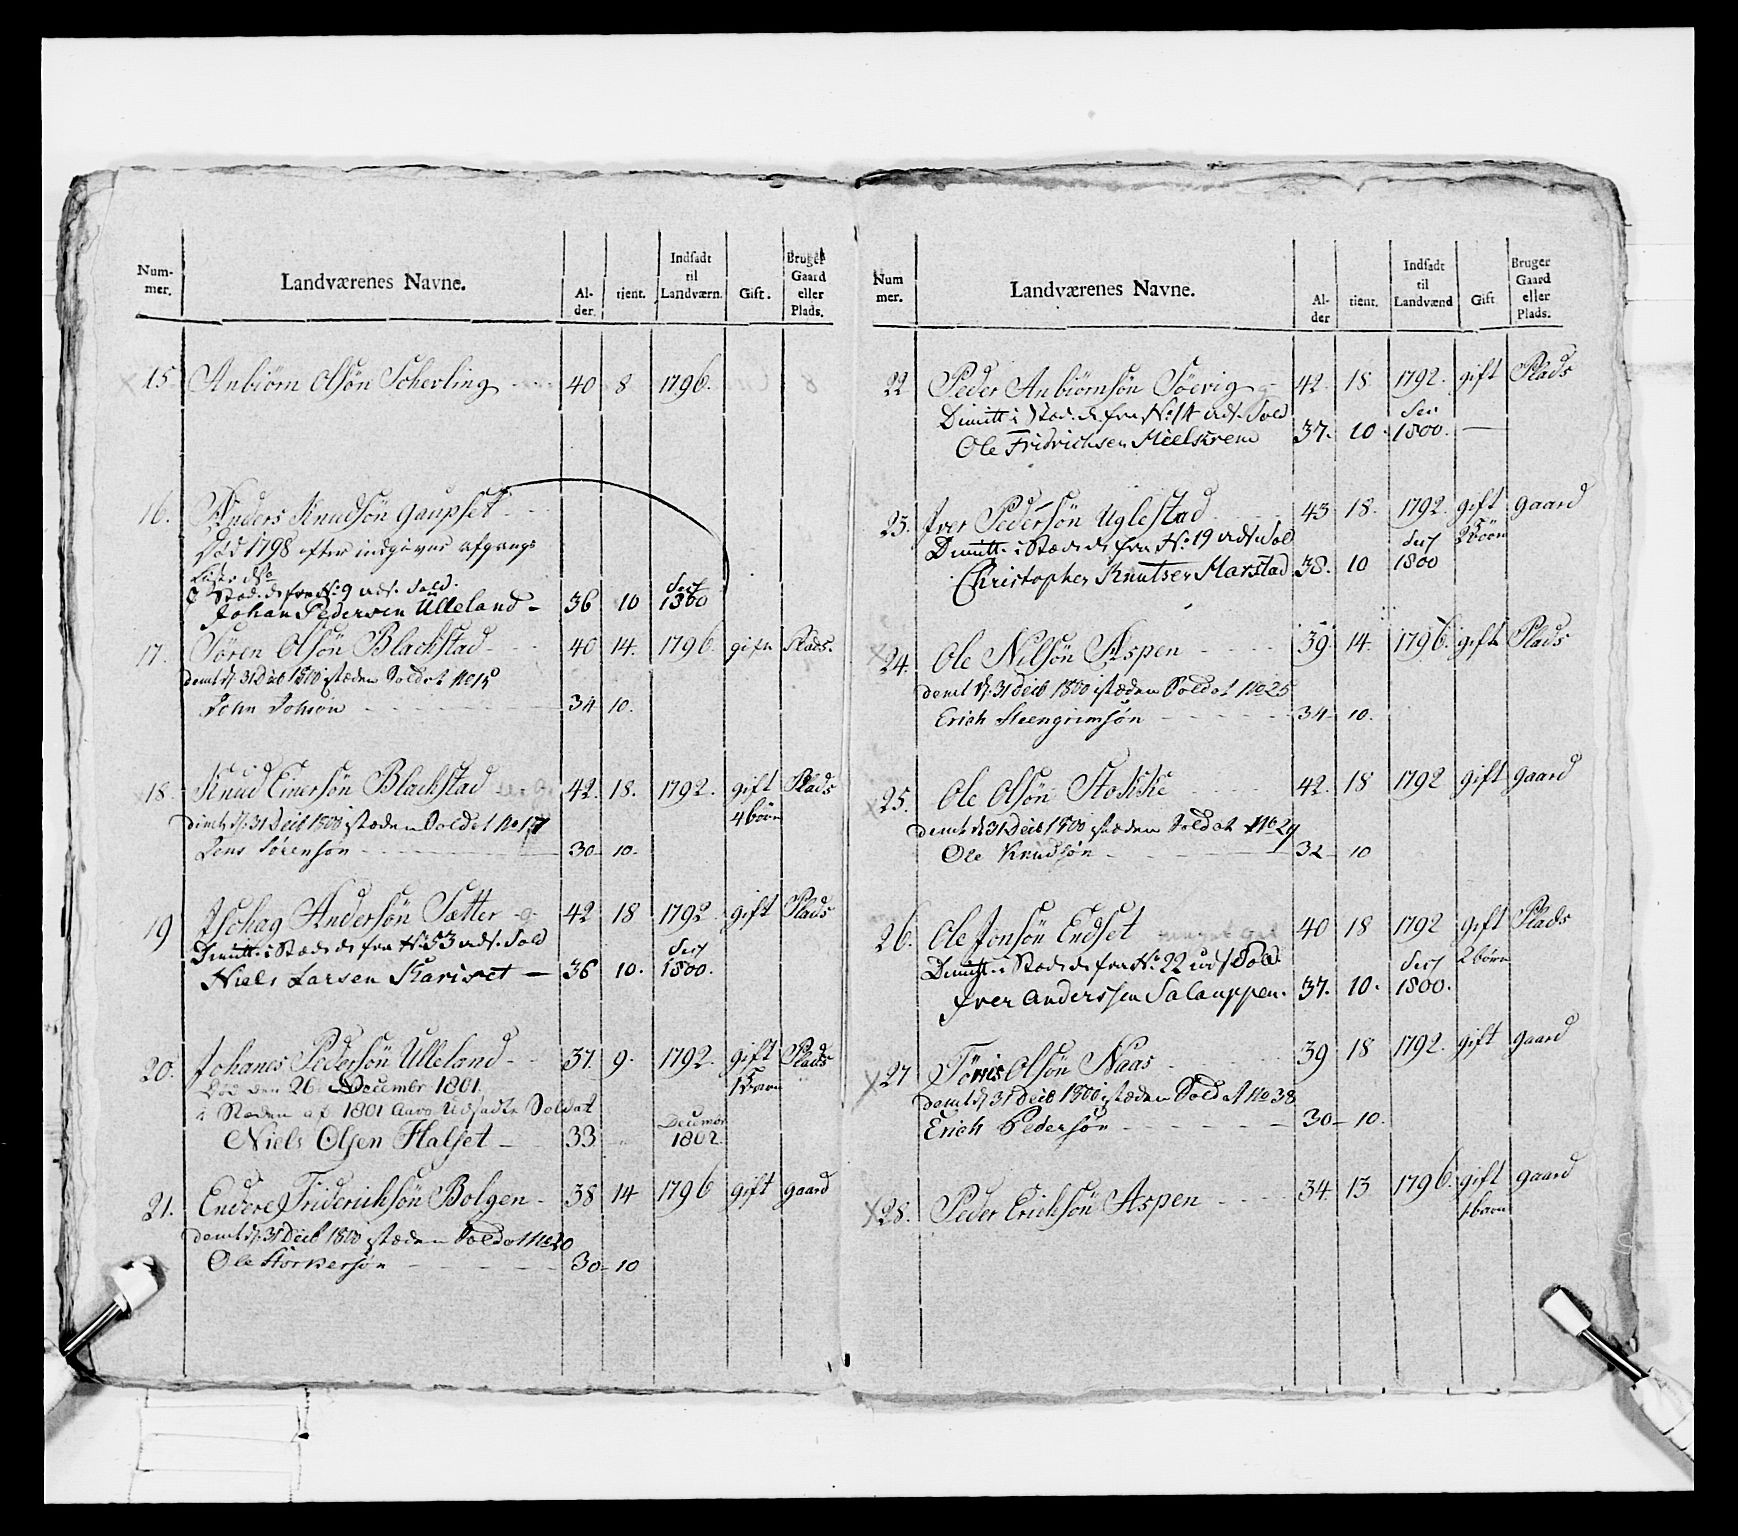 Num-
mer.
Landværenes Navne.
Al-
der.
tient.
Indsadt
til
Landværn.
Gift.
Bruger
Gaard
eller
Plads.
15. Anbiörn Olsön Scherling 40 8 1796.
16. Anders Knudsön Gaupset
Död 1798 efter indgivne afgangs
Liste
Stæd. fra No 9 uds. Sold.
Johan Pedersen Ulleland - 36 10 1800
17. Sören Olsön Blackstad 40 14. 1796 gift Plads.
demt d. 31 Decb 1800 istæden Soldat No 15
John Johnsön 34 10.
18. Knud Einersön Blackstad 42. 18. 1792. gift Plads
4 börn
dimt d. 31 Decb 1800 istæden Soldat No 17
Jens Sörensön 30 10.
19 Ischag Andersön Sætter 42 18 1792 gift Plads
Dimitt. i Stædede fra No 53 uds. Sold
Niels Larsen Kariset - 36 10. 1800.
20. Johanes Pedersön Ulleland 37. 9. 1792. gift Plads
1 Barn
Död den 26 December 1801.
i Stæden af 1801 Aars Udsadte Soldat
Niels Olsen Halset - 33 Decembr
1802.
21. Endre Friderichsön Bolgen - 38 14 1796 gift gaard
demt d. 31 Decb 1800 istæden Soldat No 20
Ole Störkersön 30 - 10
Num
mer.
Landværenes Navne.
Al-
der
tient.
Indsadt
til
Landværnd
Gift
Bruger
Gaard
eller
Plads.
22 Peder Anbiörnsön Söevig 42. 18. 1792. gift Plads
Dimitt i Stæd. de fra No 14 uds. Sold
Ole Fridrichsen Mielskrem 37. 10. 1800. -
23. Iver Pedersön Uglestad 43 18. 1792. gift gaard
2 Börn
Dimitt. i Stædede fra No. 19 uds. Sold
Christopher Knutsen Harstad 38. 10 1800
24. Ole Nilsön Aspen 39. 14. 1796. gift Plads
demt d. 31 Decb 1800 istæden Soldat No 25
Erich Steengrimsön 34 - 10.
25. Ole Olsön Stokke 42. 18 1792 gift gaard
demt d 31 Decb 1800 istæden Soldat No 29
Ole Knudsön 32 - 10
26. Ole Jonsön Endset 40 18 1792 gift Plads
2 börn
Dimitt. i Stædede fra No. 22 uds Sold.
Iver Anderssen Salauppen. 37. 10. 1800.
27 Tönis Olsön Naas 39 18 1792. gift gaard
demt d 31 Decb 1800 istæden Soldat No 38
Erich Pedersön 30 - 10.
28. Peder Ericksön Aspen 34. 13 1796. gift gaard
1 barn